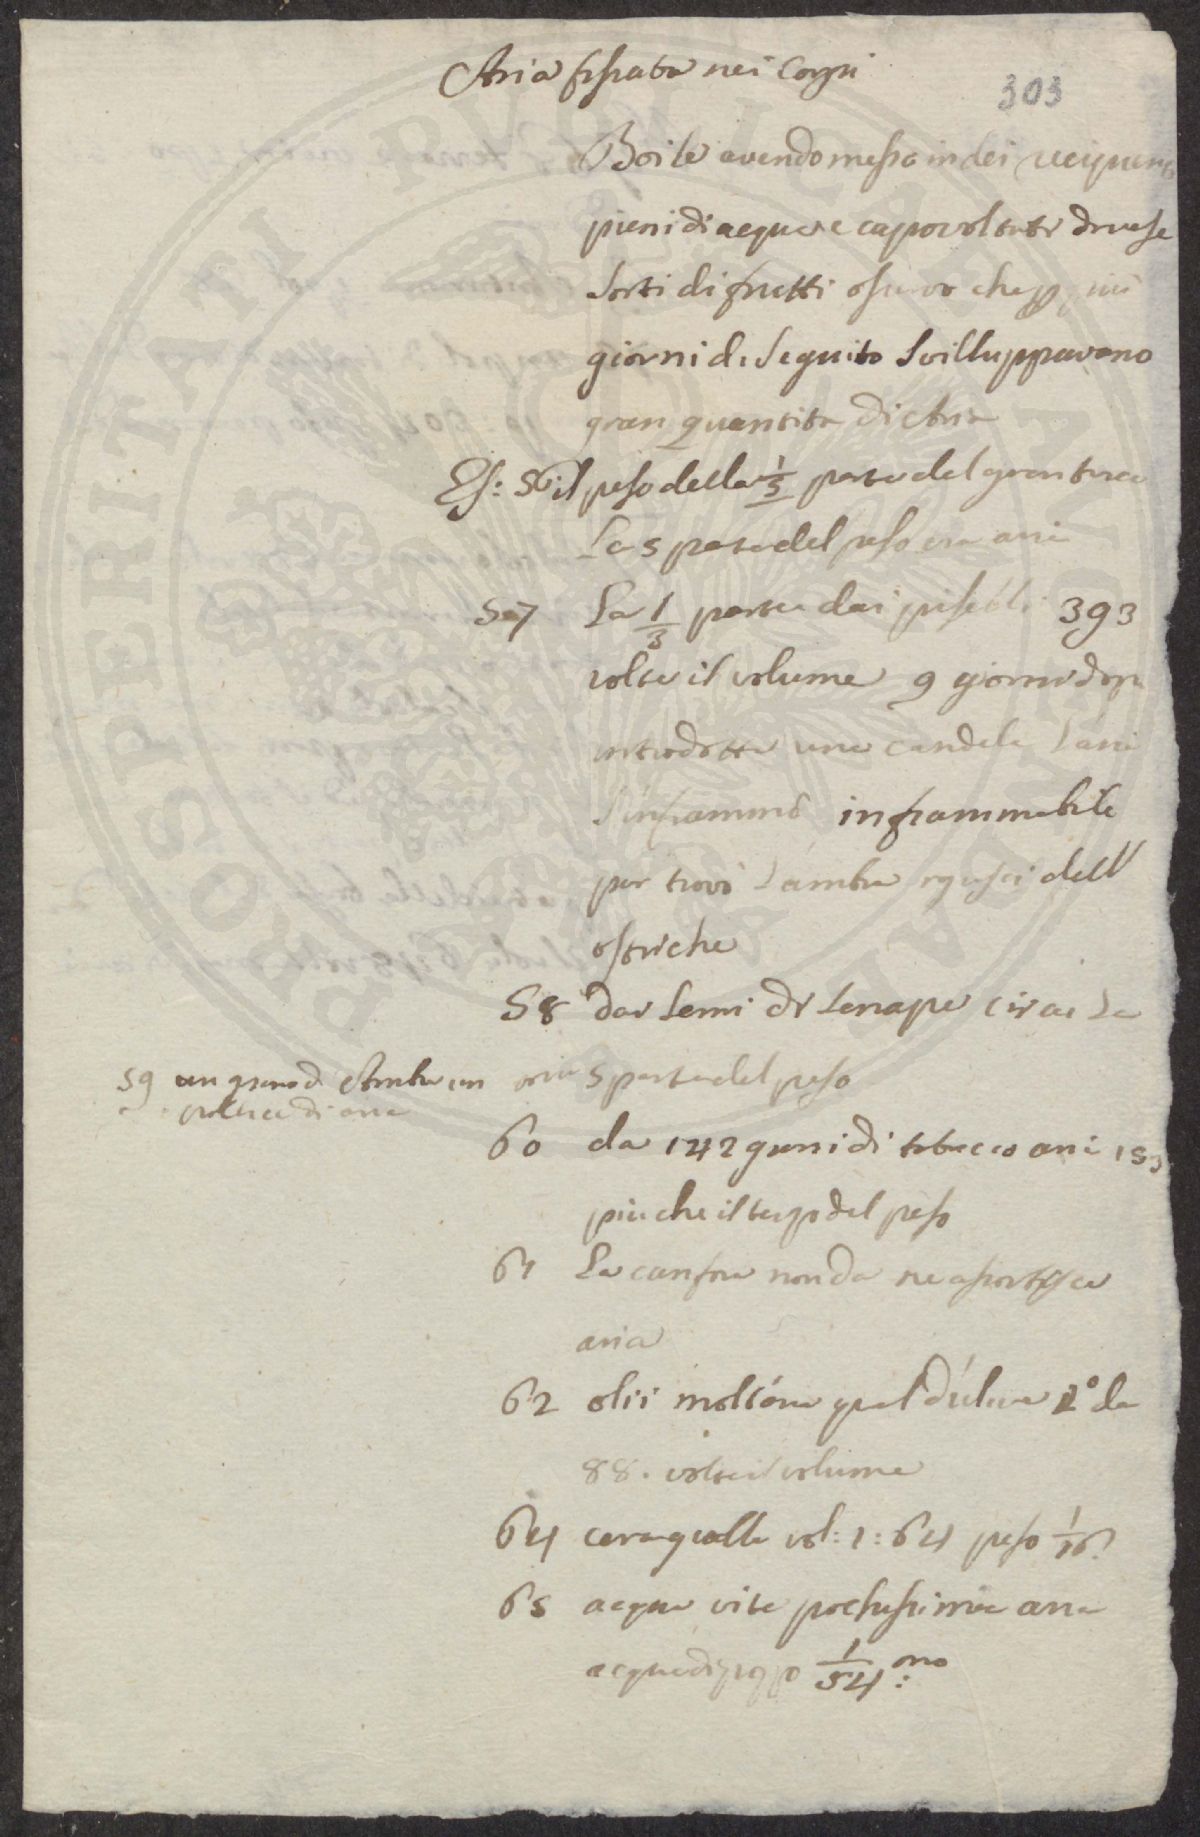 Aria fissata nei Corpi
303
Boile avendo messo in dei recipienti
pieni di acqua e capovoltati diverse
sorti di frutti osservo che p più
giorni di seguito svilluppavano
gran quantita di Aria
Es: 56 il peso della 1/3 parte del gran turco
La 5 parte del peso era aria
57 La 1/3 parte dai piselli 393
volte il volume 9 giorni dopo
introdotta una candela l'aria
s'infiammò infiammabile
pur trovò l'ambra e gusci dell'
ostriche
58 dai semi di senape circa La
59 un grano d'Ambra un 5 parte del peso
pollice di aria
60 da 142 grani di tabacco aria 153
piu che il terzo del peso
61 La canfora non da ne assorbisce
aria
62 olii molt'aria quel d'uliva 1° da
88. volte il volume
64 cera gialla vol: 1: 64 peso 1/16
65 acqua vite pochissima aria
acqua di pozzo 1/54:mo
PROSPERITATI PVBLICAE